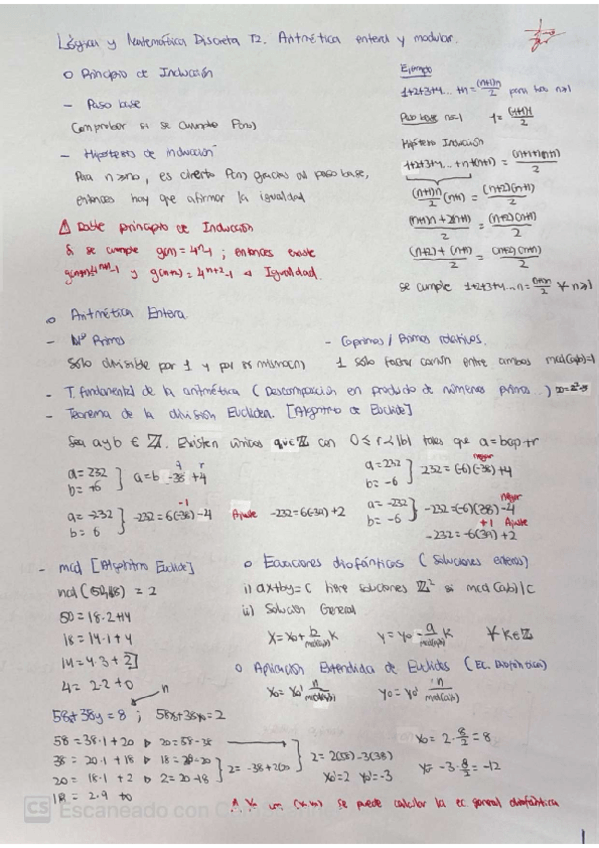 Lógica y Matemática Discreta T2. Aritmética entera y modular.
o Principio de Inducción
- Paso base
Comprobar si se cumple P(n₀)
- Hipótesis de inducción
Para n≥n₀, es cierto P(n) gracias al paso base,
entonces hay que afirmar la igualdad
⚠ Doble principio de Inducción
Si se cumple g(n)=4ⁿ-1 ; entonces existe
g(n+1)=4ⁿ⁺¹-1 y g(n+2)=4ⁿ⁺²-1 Igualdad.
Ejemplo
1+2+3+4... +n=(n+1)n/2 para todo n≥1
Paso base n=1 1=(1+1)1/2
Hipótesis Inducción
1+2+3+4... +n+(n+1)=(n+1+1)(n+1)/2
(n+1)n/2 (n+1) = (n+2)(n+1)/2
(n+1)n + 2(n+1)/2 = (n+2)(n+1)/2
(n+2) + (n+1)/2 = (n+2)(n+1)/2
se cumple 1+2+3+4... n=(n+1)n/2 ∀ n≥1
o Aritmética Entera
- Nº Primos
Sólo divisible por 1 y por sí mismo(n)
- Coprimos / Primos relativos.
1 sólo factor común entre ambos mcd(a,b)=1
- T. fundamental de la aritmética (Descomposición en producto de números primos...)
- Teorema de la división Euclídea. [Algoritmo de Euclides]
Sea a y b ∈ ℤ. Existen únicos q y r ∈ ℤ con 0 ≤ r < |b| tales que a=b·q+r
a=232
b=+6
a=b·38+4
q r
a=-232
b=6
-232=6(-38)-4
-1
Ajuste -232=6(-39)+2
a=232
b=-6
232=(-6)(-38)+4
negar
a=-232
b=-6
-232=(-6)(38)-4
negar
+1 Ajuste
-232=-6(39)+2
- mcd [Algoritmo Euclides]
mcd(50,18) = 2
50=18·2+14
18=14·1+4
14=4·3+2
4=2·2+0
o Ecuaciones diofánticas (Soluciones enteras)
i) ax+by=c tiene soluciones ℤ² si mcd(a,b)|c
ii) Solución General
X=X₀+b/mcd(a,b) K Y=Y₀-a/mcd(a,b) K ∀ K∈ℤ
o Aplicación Extendida de Euclides (Ec. Diofántica)
X₀=X₀' n/mcd(a,b) Y₀=Y₀' n/mcd(a,b)
n
58x+38y=8 ; 58x₀+38y₀=2
58=38·1+20 ▷ 20=58-38
38=20·1+18 ▷ 18=38-20
20=18·1+2 ▷ 2=20-18
18=2·9+0
2=-38+2(20)
2=2(58)-3(38)
X₀'=2 Y₀'=-3
X₀=2·8/2=8
Y₀=-3·8/2=-12
se puede calcular la ec. general diofántica
CS Escaneado con
1